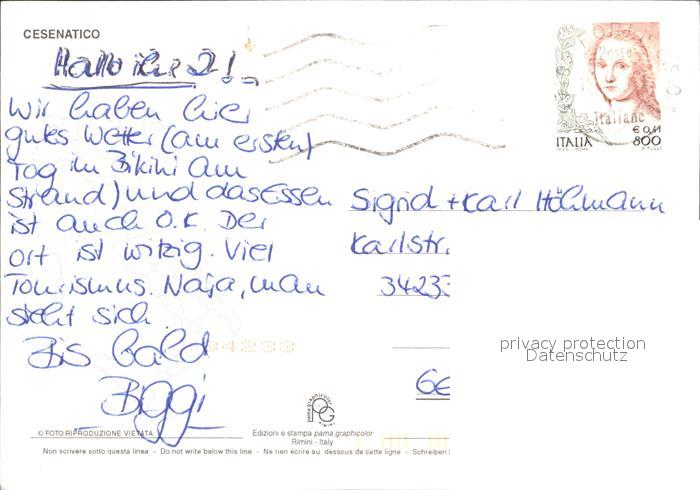 CESENATICO
Hallo ihr 2!
Wir haben hier
gutes Wetter (am ersten)
Tag im Bikini am
Strand) und das Essen
ist auch O.K. Der
Ort ist witzig. Viel
Tourismus. Naja, man
sieht sich
Bis bald
Biggi
Poste
Italiane
€ 0,41
ITALIA 800
Sigrid + Karl
Karlstr.
34233
34233
privacy protection
Datenschutz
pama graphicolor
PG
RIMINI
© FOTO RIPRODUZIONE VIETATA
Edizioni e stampa pama graphicolor
Rimini - Italy
Non scrivere sotto questa linea - Do not write below this line - Ne rien écrire au dessous de cette ligne - Schreiben